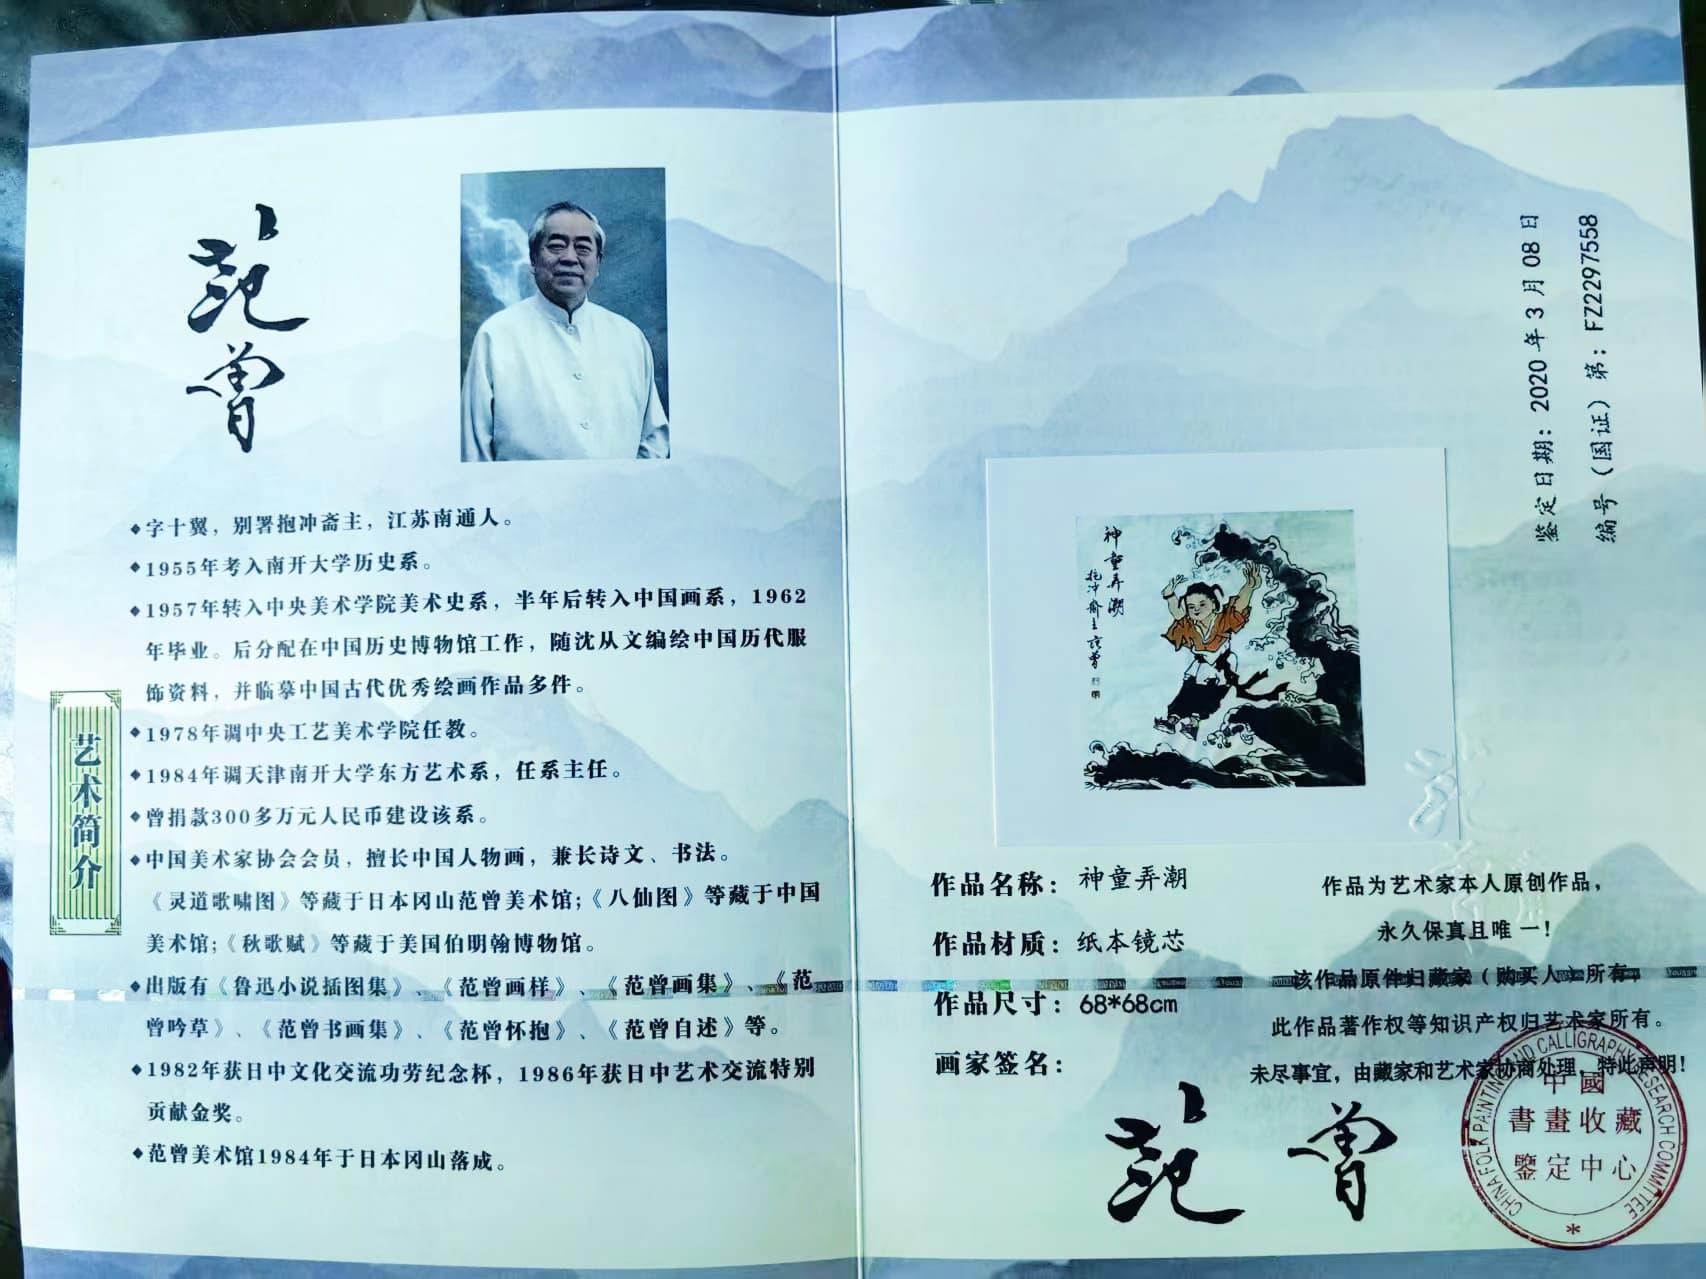 范曾
◆字十翼，别署抱冲斋主，江苏南通人。
◆1955年考入南开大学历史系。
◆1957年转入中央美术学院美术史系，半年后转入中国画系，1962
年毕业。后分配在中国历史博物馆工作，随沈从文编绘中国历代服
饰资料，并临摹中国古代优秀绘画作品多件。
◆1978年调中央工艺美术学院任教。
◆1984年调天津南开大学东方艺术系，任系主任。
◆曾捐款300多万元人民币建设该系。
◆中国美术家协会会员，擅长中国人物画，兼长诗文、书法。
《灵道歌啸图》等藏于日本冈山范曾美术馆；《八仙图》等藏于中国
美术馆；《秋歌赋》等藏于美国伯明翰博物馆。
◆出版有《鲁迅小说插图集》、《范曾画样》、《范曾画集》、《范
曾吟草》、《范曾书画集》、《范曾怀抱》、《范曾自述》等。
◆1982年获日中文化交流功劳纪念杯，1986年获日中艺术交流特别
贡献金奖。
◆范曾美术馆1984年于日本冈山落成。
艺术简介
鉴定日期：2020年3月08日
编号（国证）第：FZ2297558
神童弄潮
抱冲斋主范曾
作品名称：神童弄潮
作品材质：纸本镜芯
作品尺寸：68*68cm
画家签名：
范曾
作品为艺术家本人原创作品，
永久保真且唯一！
该作品原件归藏家（购买人）所有，
此作品著作权等知识产权归艺术家所有。
未尽事宜，由藏家和艺术家协商处理，特此声明！
CHINA FOLK PAINTING AND CALLIGRAPHY RESEARCH COMMITTEE
中國
書畫收藏
鑒定中心